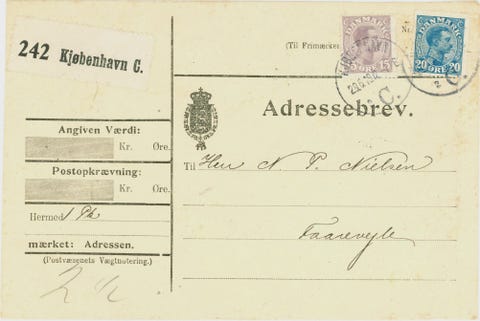 242 Kjøbenhavn C.
(Til Frimærker
DANMARK
15 ØRE 15
DANMARK
20 ØRE 20
C.
C.
Adressebrev.
Angiven Værdi:
Kr. Øre.
Postopkrævning:
Kr. Øre.
Hermed 1 Pk
mærket: Adressen.
(Postvæsenets Vægtnotering.)
2 ½
Til Herr N. P. Nielsen
Faarevejle